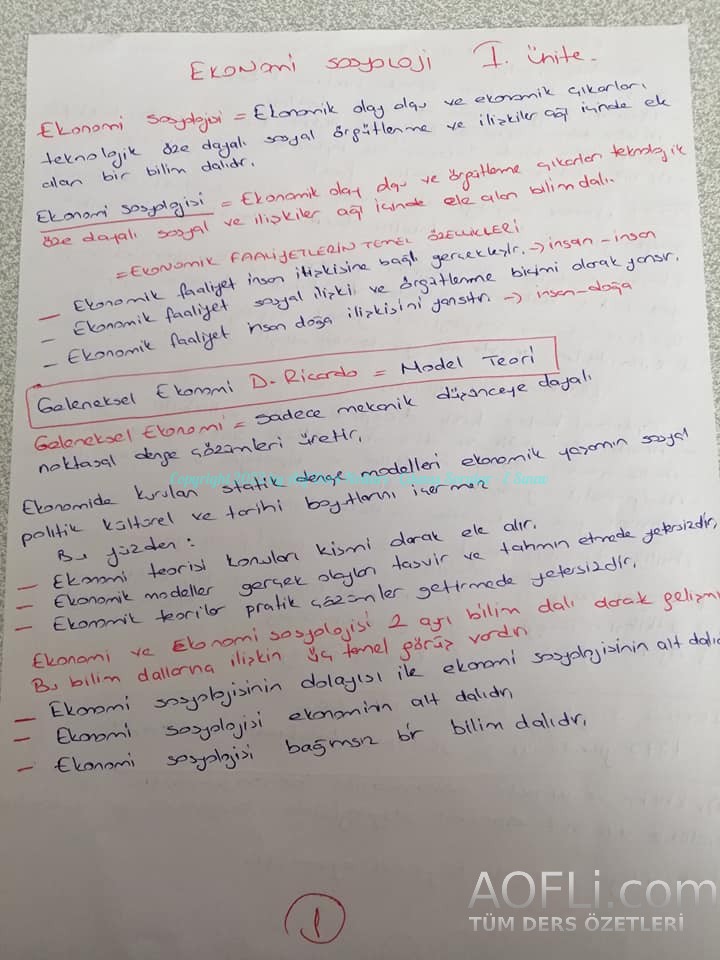 EKONOMİ SOSYOLOJİ I. ünite.
Ekonomi sosyolojisi = Ekonomik olay olgu ve ekonomik çıkarları,
teknolojik öze dayalı sosyal örgütlenme ve ilişkiler ağı içinde ele
alan bir bilim dalıdır.
Ekonomi sosyolojisi = Ekonomik olay olgu ve örgütleme çıkarları teknolojik
öze dayalı sosyal ve ilişkiler ağı içinde ele alan bilim dalı.
= EKONOMİK FAALİYETLERİN TEMEL ÖZELLİKLERİ
— Ekonomik faaliyet insan ilişkisine bağlı gerçekleşir. → insan - insan
— Ekonomik faaliyet sosyal ilişki ve örgütlenme biçimi olarak yansır.
— Ekonomik faaliyet insan doğa ilişkisini yansıtır. → insan - doğa
Geleneksel Ekonomi D. Ricardo = Model Teori
Geleneksel Ekonomi = Sadece mekanik düşünceye dayalı
noktasal denge çözümleri üretir.
Ekonomide kurulan statik denge modelleri ekonomik yaşamın sosyal
politik kültürel ve tarihi boyutlarını içermez
Bu yüzden :
— Ekonomi teorisi konuları kısmi olarak ele alır.
— Ekonomik modeller gerçek olayları tasvir ve tahmin etmede yetersizdir,
— Ekonomik teoriler pratik çözümler getirmede yetersizdir.
Ekonomi ve Ekonomi sosyolojisi 2 ayrı bilim dalı olarak gelişmi
Bu bilim dallarına ilişkin üç temel görüş vardır
— Ekonomi sosyolojisinin dolayısı ile ekonomi sosyolojisinin alt dalıd
— Ekonomi sosyolojisi ekonominin alt dalıdır
— Ekonomi sosyolojisi bağımsız bir bilim dalıdır.
1
AOFLi.com
TÜM DERS ÖZETLERİ